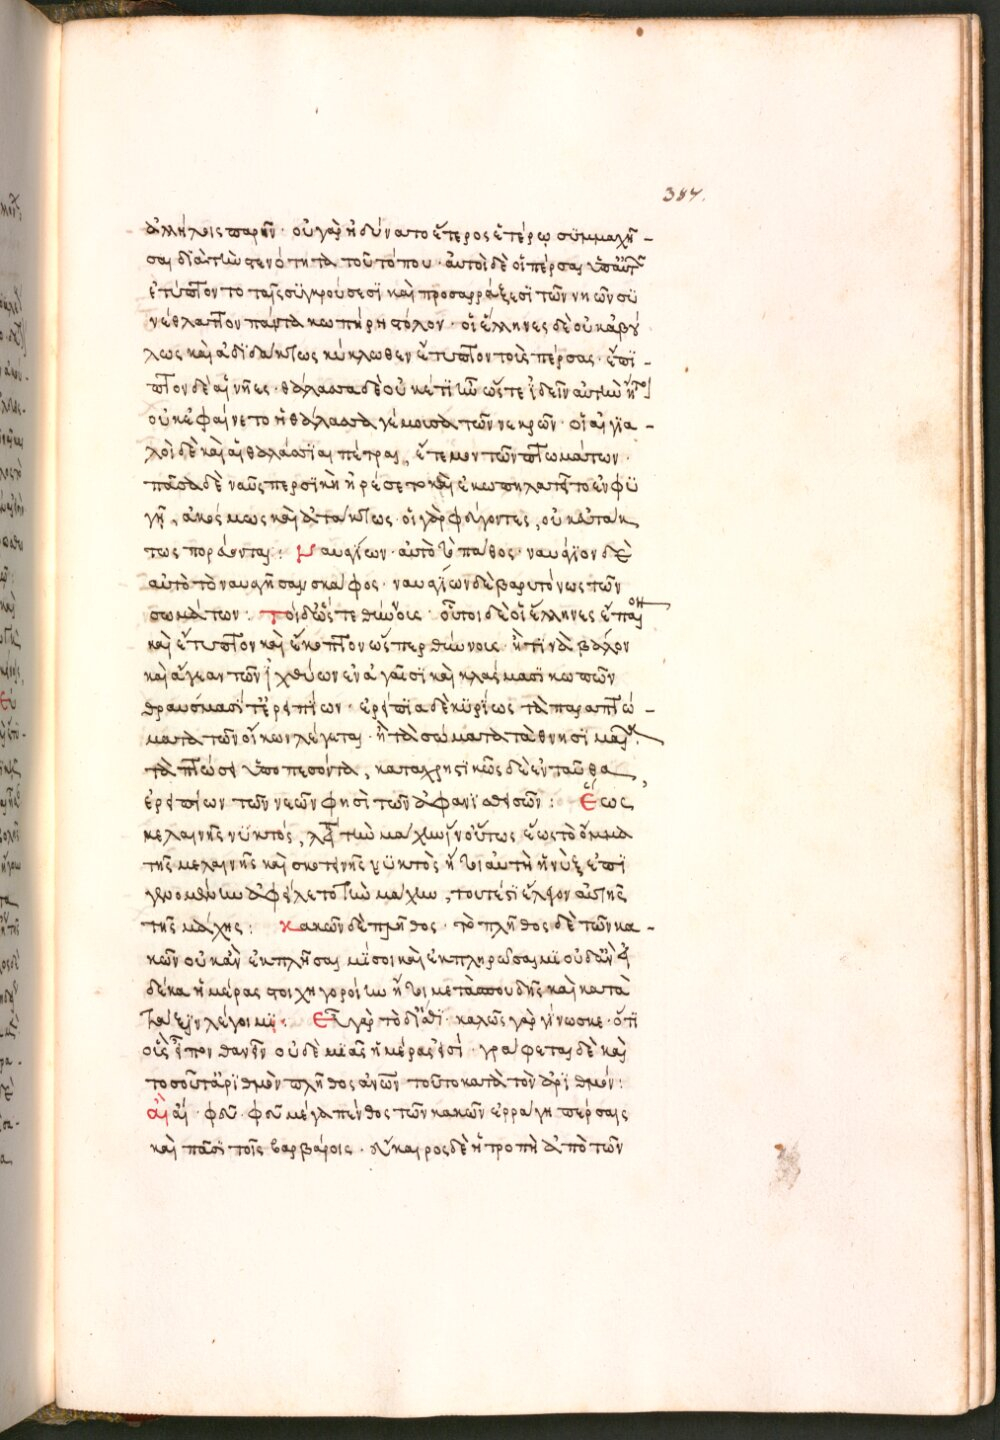 387.
ἀλλήλοις παρῆν· οὐ γὰρ ἠδύνατο ἕτερος ἑτέρῳ συμμαχῆ-
σαι διὰ τὴν στενότητα τοῦ τόπου· αὐτοὶ δὲ οἱ πέρσαι ὑπ' αὐτῶν
ἐτύπτοντο ταῖς συγκρούσεσι καὶ προσαρράξεσι τῶν νηῶν συ
νέθλαττον πάντα κωπήρη στόλον· οἱ ἕλληνες δὲ οὐκ ἀβού
λως καὶ ἀδιδάκτως κύκλωθεν ἔτυπτον τοὺς πέρσας· ἔπι-
πτον δὲ αἱ νῆες· θάλασσα δὲ οὐκέτι ἦν ὥστε ἰδεῖν αὐτὴν ἤτοι
οὐκ ἐφαίνετο ἡ θάλασσα γέμουσα τῶν νεκρῶν· οἱ αἰγια-
λοὶ δὲ καὶ αἱ θαλάσσιαι πέτραι, ἔγεμον τῶν πτωμάτων·
πᾶσα δὲ ναῦς περσικὴ ἠρέσετο καὶ ἐκωπηλατεῖτο ἐν φυ
γῇ, ἀκόσμως καὶ ἀτάκτως· οἱ γὰρ φεύγοντες, οὐκ εὐτάκ
τως πορεύονται: Ναυαγίων· αὐτὸ τὸ πάθος· ναυάγιον δὲ
αὐτὸ τὸ ναυαγῆσαν σκάφος· ναυαγίων δὲ βαρυτόνως τῶν
σωμάτων: Τοὶ δ' ὥστε θύννους· οὗτοι δὲ οἱ ἕλληνες ἔπαιον
καὶ ἔτυπτον καὶ ἔκοπτον ὥσπερ θύννους· ἤ τινα βόλον
καὶ ἄγραν τῶν ἰχθύων ἐν ἀγαῖσι καὶ κλάσμασι κωπῶν
θραύσμασί τ' ἐρειπίων· ἐρείπια δὲ κυρίως τὰ παραπτώ-
ματα τῶν οἴκων λέγεται· ἢ τὰ σώματα τὰ θνησιμαῖα
τὰ πτώσει ὑποπεσόντα, καταχρηστικῶς δὲ ἐνταῦθα
ἐρειπίων τῶν νεῶν φησὶ τῶν ἀφανισθεισῶν: Ἕως
κελαινῆς νυκτός, λείπει τὴν μάχην ἵν' οὕτως ἕως τὸ ὄμμα
τῆς μελαίνης καὶ σκοτεινῆς νυκτὸς ἤγουν αὐτὴ ἡ νὺξ ἐπι
γενομένη ἀφείλετο τὴν μάχην, τουτέστιν ἔληξον αὐτῆς
τῆς μάχης: Κακῶν δὲ πλῆθος· τὸ πλῆθος δὲ τῶν κα-
κῶν οὐκ ἂν ἐκπλήσαιμί σοι καὶ ἐκπληρώσαιμι οὐδ' ἂν εἰ
δέκα ἡμέρας στοιχηγοροίην ἤγουν μετὰ σπουδῆς καὶ κατὰ
τάξιν λέγοιμι: Εὖ γὰρ τόδ' ἴσθι· καλῶς γὰρ γίνωσκε· ὅτι
οἷς ἔτρον θανεῖν οὐδὲ μιᾶς ἡμέρας ἐστί· γράφεται δὲ καὶ
τοσουτάριθμον πλῆθος ἀνθρώπων τοῦτο κατὰ τὸν ἀριθμόν:
Αἲ αἴ· φεῦ· φεῦ μέγα πένθος τῶν κακῶν ἐρράγη πέρσαις
καὶ πᾶσι τοῖς βαρβάροις· εὔκαιρος δὲ ἡ τροπὴ ἀπὸ τῶν